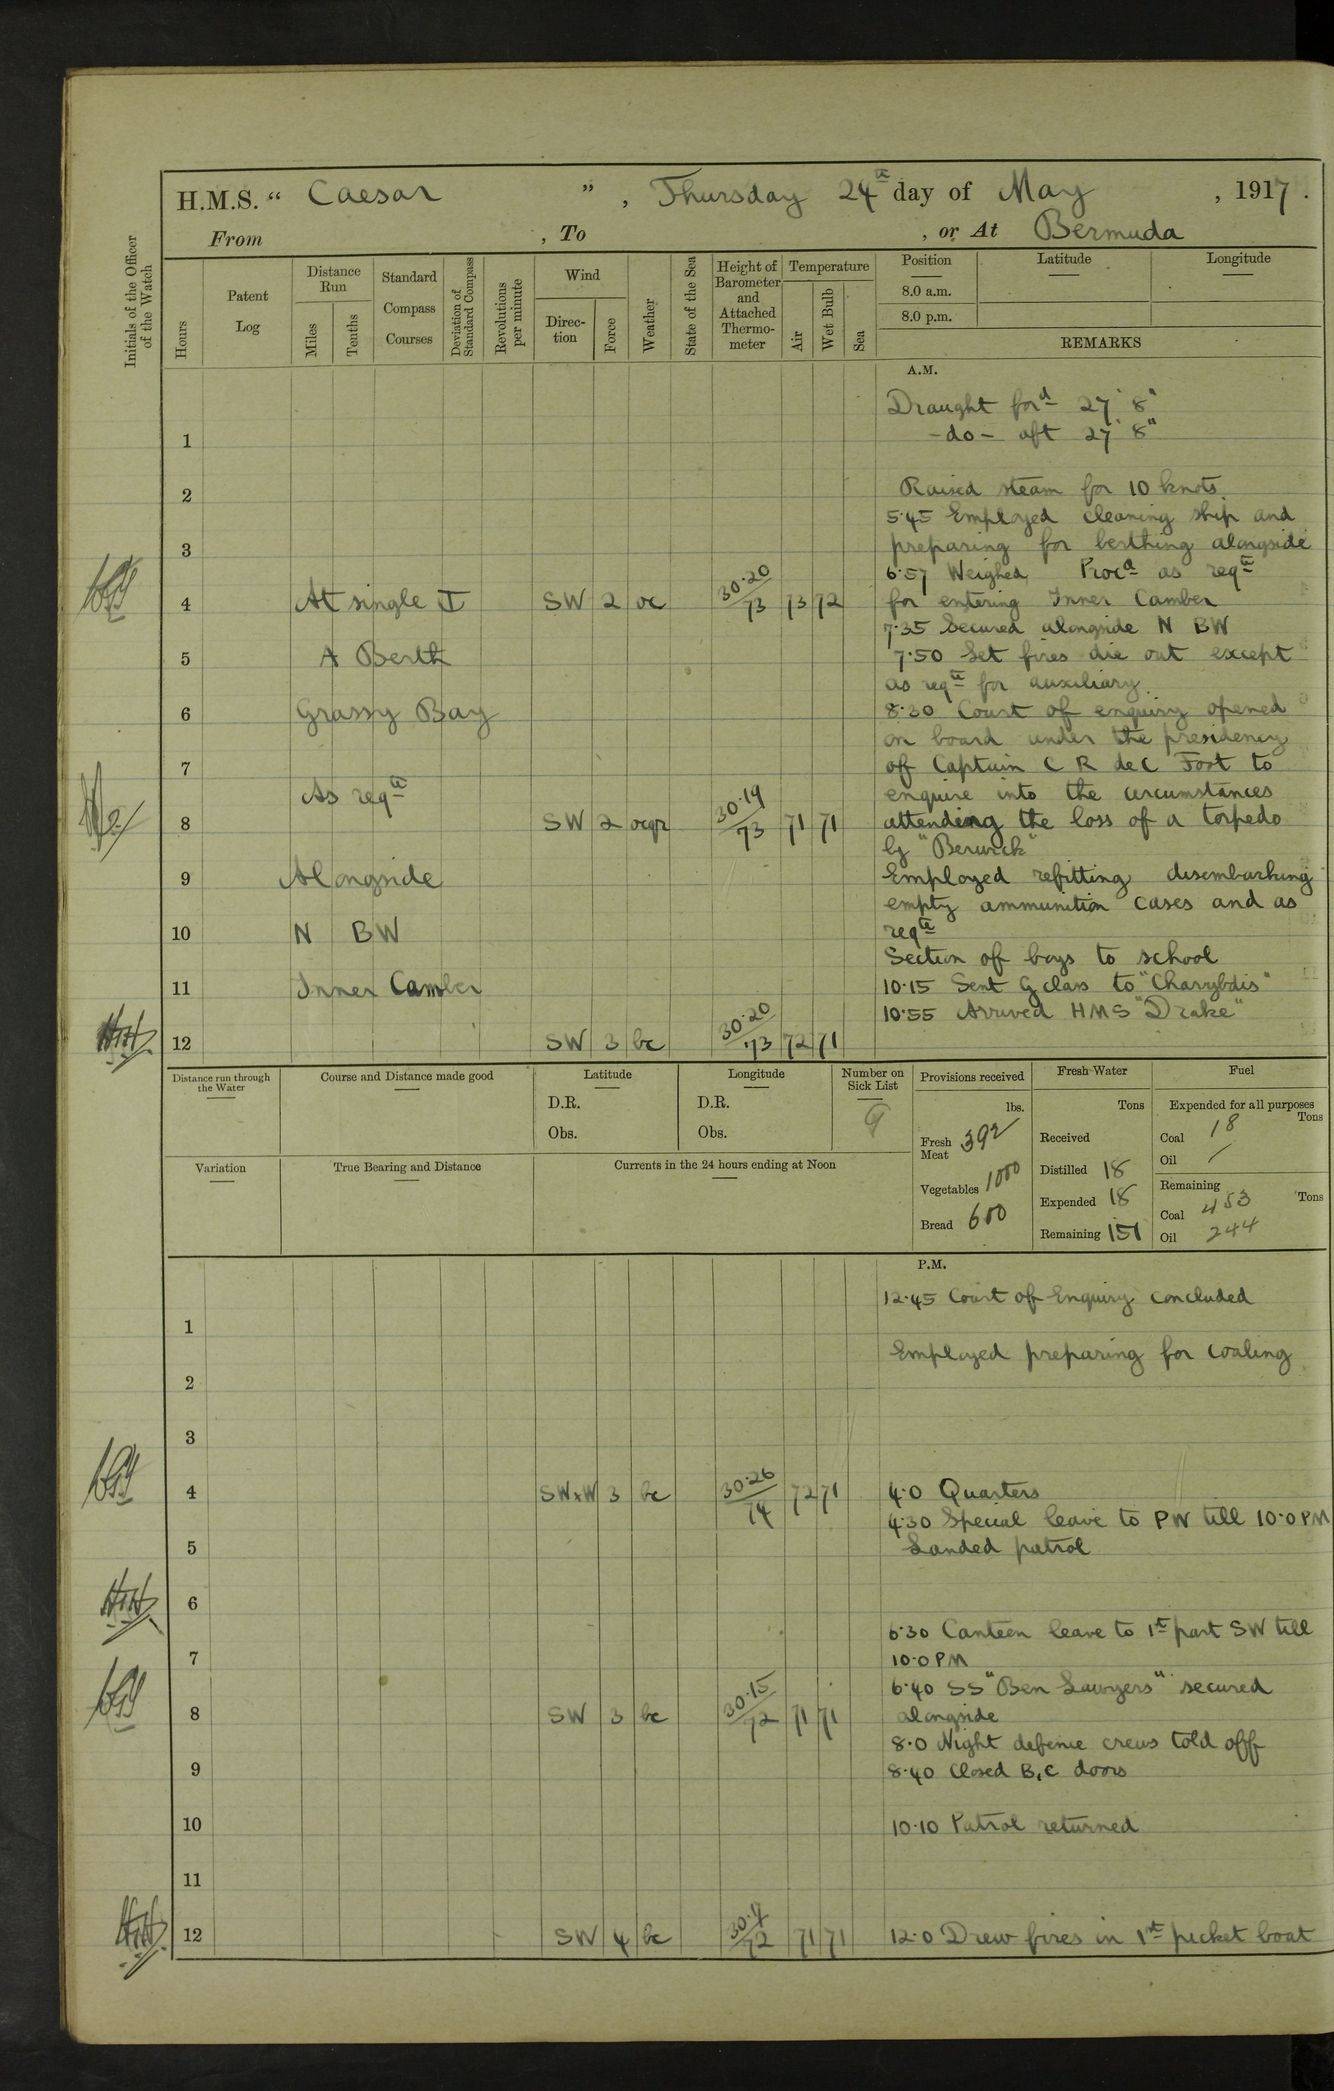 H.M.S. “ Caesar ”, Thursday 24th day of May , 1917.
From , To , or At Bermuda
Initials of the Officer of the Watch
Hours
Patent Log
Distance Run
Miles
Tenths
Standard Compass Courses
Deviation of Standard Compass
Revolutions per minute
Wind
Direc-tion
Force
Weather
State of the Sea
Height of Barometer and Attached Thermo-meter
Temperature
Air
Wet Bulb
Sea
Position
8.0 a.m.
8.0 p.m.
Latitude
Longitude
REMARKS
A.M.
Draught ford 27' 8"
-do- aft 27' 8"
1
2
Raised steam for 10 knots.
5.45 Employed cleaning ship and
3
preparing for berthing alongside
6.57 Weighed Procd as reqte
4 At single SW 2 oc 30.20/73 73 72
for entering Inner Camber
7.35 Secured alongside N BW
5 A Berth
7.50 Let fires die out except
as reqte for auxiliary.
6 Grassy Bay
8.30 Court of enquiry opened
on board under the presidency
7
of Captain C R de C Foot to
As reqte
enquire into the circumstances
8 SW 2 ocqr 30.19/73 71 71
attending the loss of a torpedo
by "Berwick"
9 Alongside
Employed refitting disembarking
empty ammunition cases and as
10 N BW
reqte
Section of boys to school
11 Inner Camber
10.15 Sent G class to "Charybdis"
10.55 Arrived HMS "Drake"
12 SW 3 bc 30.20/73 72 71
Distance run through the Water
Course and Distance made good
Latitude
D.R.
Obs.
Longitude
D.R.
Obs.
Number on Sick List
9
Provisions received
lbs.
Fresh Meat 392
Vegetables 1000
Bread 600
Fresh Water
Tons
Received
Distilled 18
Expended 18
Remaining 151
Fuel
Expended for all purposes
Tons
Coal 18
Oil /
Remaining
Tons
Coal 453
Oil 244
Variation
True Bearing and Distance
Currents in the 24 hours ending at Noon
P.M.
12.45 Court of Enquiry concluded
1
Employed preparing for coaling
2
3
4 SWxW 3 bc 30.26/74 72 71
4.0 Quarters
4.30 Special leave to PW till 10.0 PM
5
Landed patrol
6
6.30 Canteen leave to 1st part SW till
7
10.0 PM
6.40 SS "Ben Lawyers" secured
8 SW 3 bc 30.15/72 71 71
alongside
8.0 Night defence crews told off
9
8.40 Closed B, C doors
10
10.10 Patrol returned
11
12 SW 4 bc 72 71 71
12.0 Drew fires in 1st picket boat